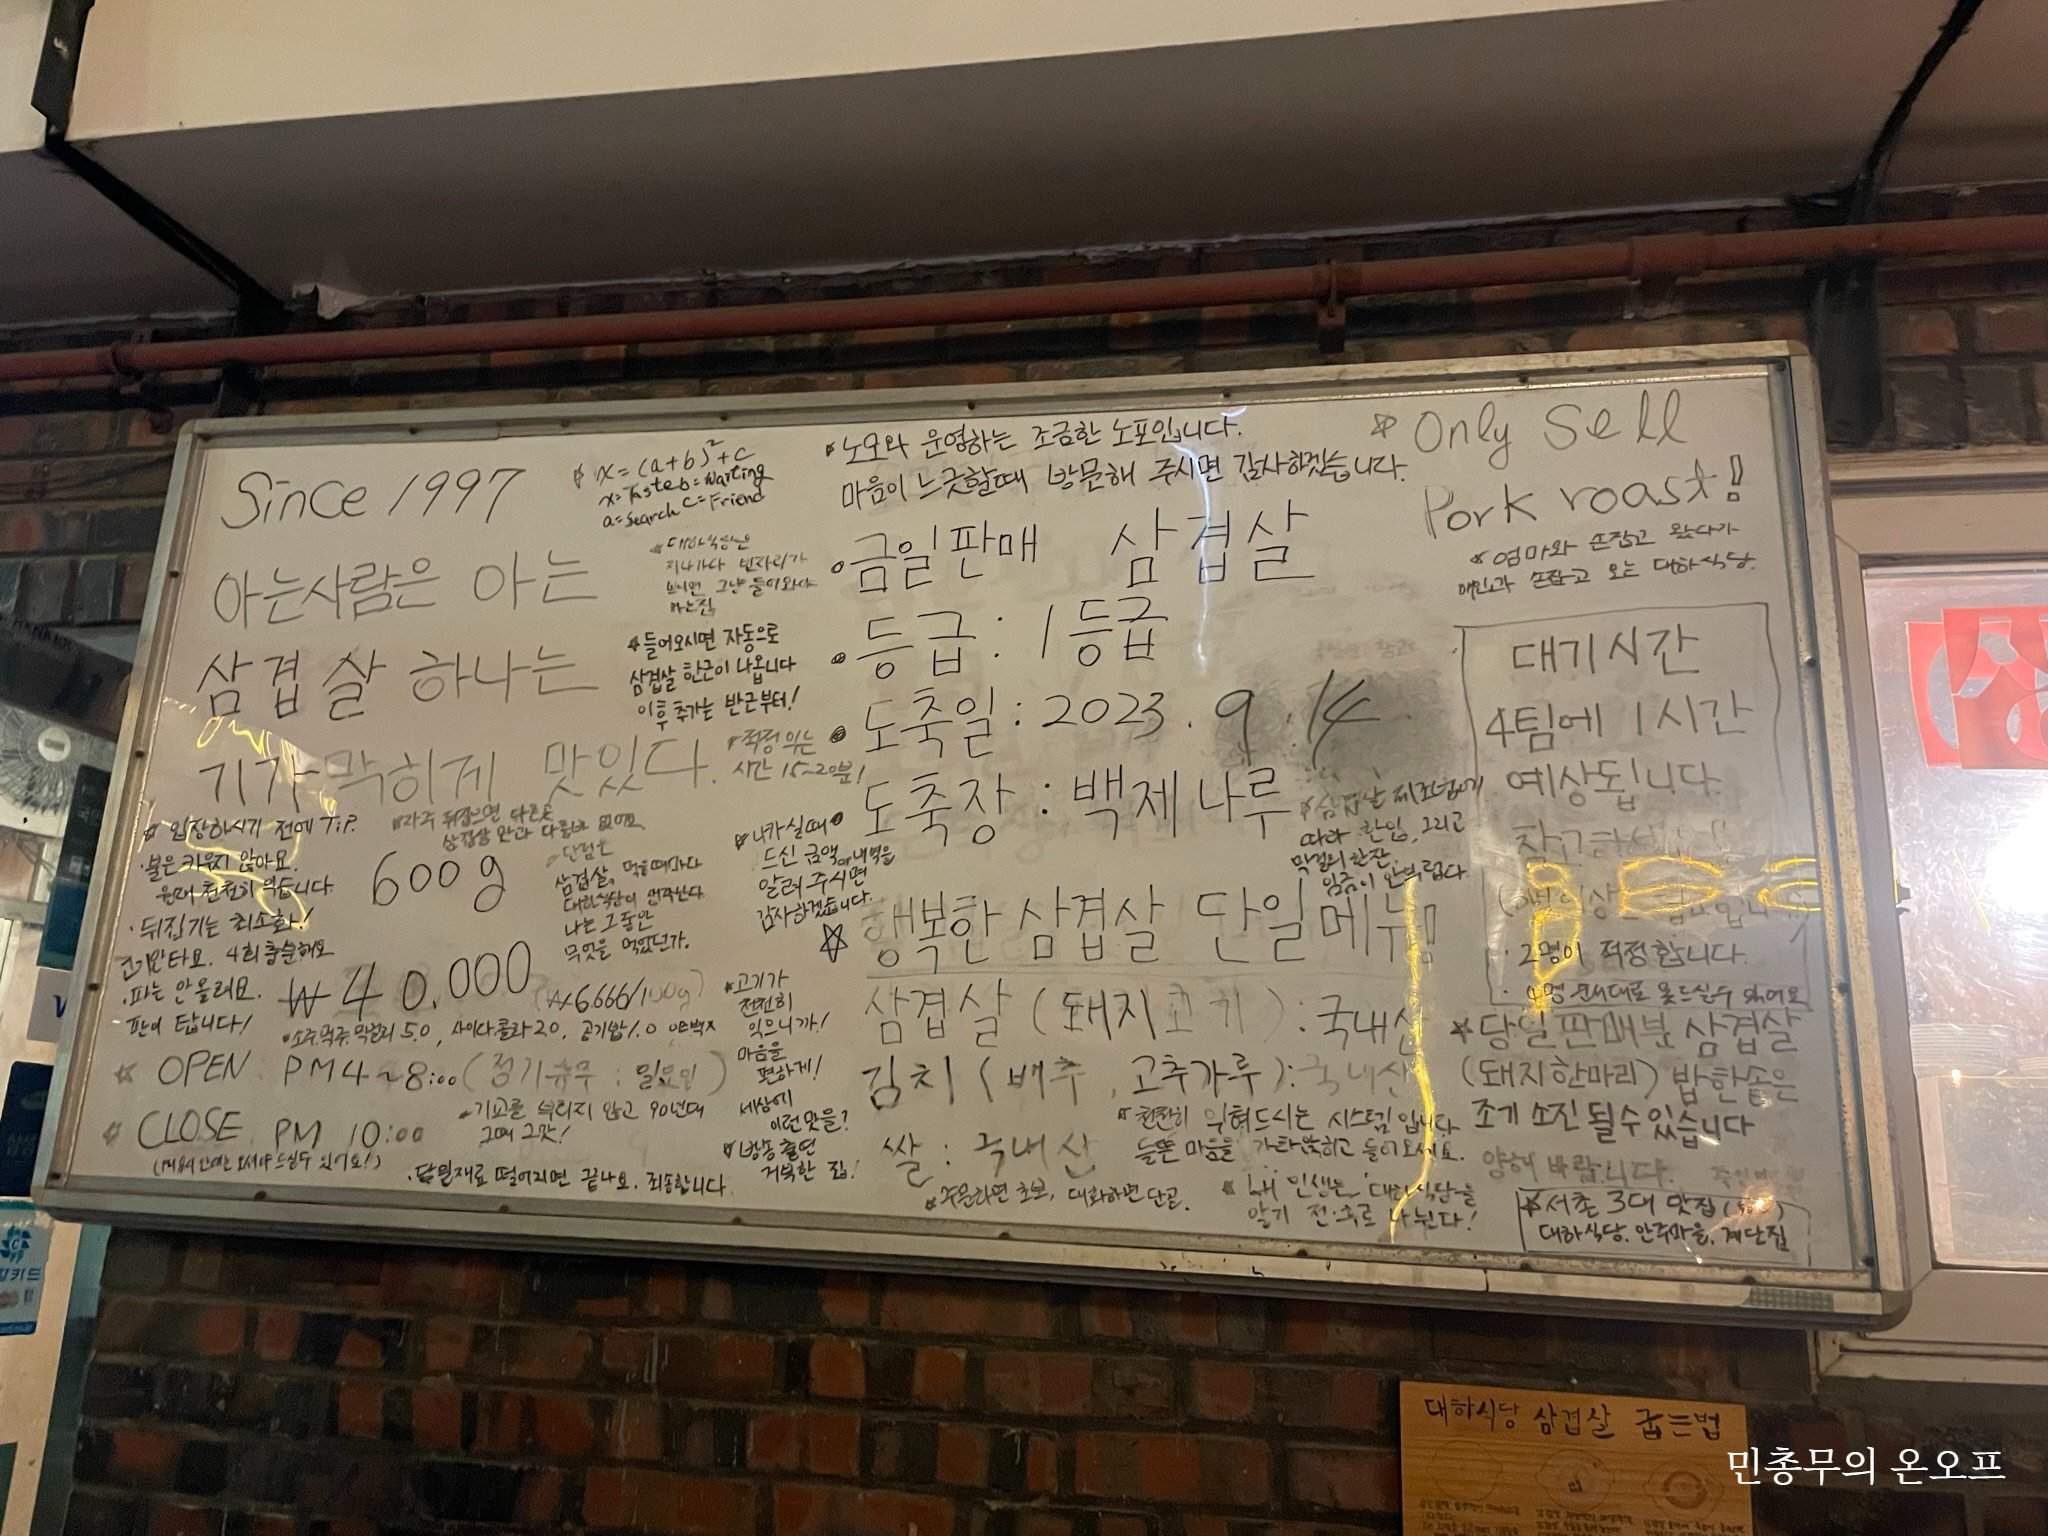 Since 1997
아는사람은 아는
삼겹살 하나는
기가막히게 맛있다.
x = (a+b)²+c
x=Taste b=waiting
a=Search c=Friend
대하식당은
지나가다 빈자리가
보이면 그냥 들어와야
하는집
들어오시면 자동으로
삼겹살 한근이 나옵니다
이후 추가는 반근부터!
적정 익는
시간 15~20분!
입장하시기 전에 Tip.
·불은 키우지 않아요.
원래 천천히 익습니다.
·뒤집기는 최소화!
고기만타요. 4회 충분해요
·파는 안 올려요.
판이 탑니다!
자주 뒤집으면 다른곳
삼겹살 맛과 다를바 없어요
600g
₩40,000
(₩6,666/100g)
·단점은
삼겹살, 먹을때마다
대하식당이 생각난다
나는 그동안
무엇을 먹었던가.
소주.맥주.막걸리 5.0, 사이다.콜라 2.0, 공기밥 1.0
OPEN PM 4~8:00 (정기휴무 : 일요일)
CLOSE PM 10:00
기교를 부리지 않고 90년대
그때 그맛!
·당일재료 떨어지면 끝나요. 죄송합니다.
나가실때
드신 금액or내역을
알려 주시면
감사하겠습니다.
고기가
천천히
익으니까!
마음을
편하게!
세상에
이런맛을?
방송 출연
거북한 집!
노모와 운영하는 조금한 노포입니다.
마음이 느긋할때 방문해 주시면 감사하겠습니다.
금일판매 삼겹살
등급 : 1등급
도축일 : 2023. 9. 14
도축장 : 백제나루
행복한 삼겹살 단일메뉴!
삼겹살 (돼지고기) : 국내산
김치 (배추, 고추가루) : 국내산
쌀 : 국내산
천천히 익혀드시는 시스템 입니다
들뜬 마음을 가라앉히고 들어오세요.
주문하면 초보, 대화하면 단골.
내 인생은 대하식당을
알기 전·후로 나뉜다!
Only Sell
Pork roast!
엄마와 손잡고 왔다가
애인과 손잡고 오는 대하식당.
대기시간
4팀에 1시간
예상됩니다.
·2명이 적정합니다.
삼겹살 제조법에
따라 한입, 그리고
막걸리 한잔.
임금이 안부럽다.
당일판매분 삼겹살
(돼지한마리) 밥한솥은
조기 소진 될수있습니다
양해 바랍니다.
서촌 3대 맛집
대하식당. 안주마을. 계단집
대하식당 삼겹살 굽는법
민총무의 온오프